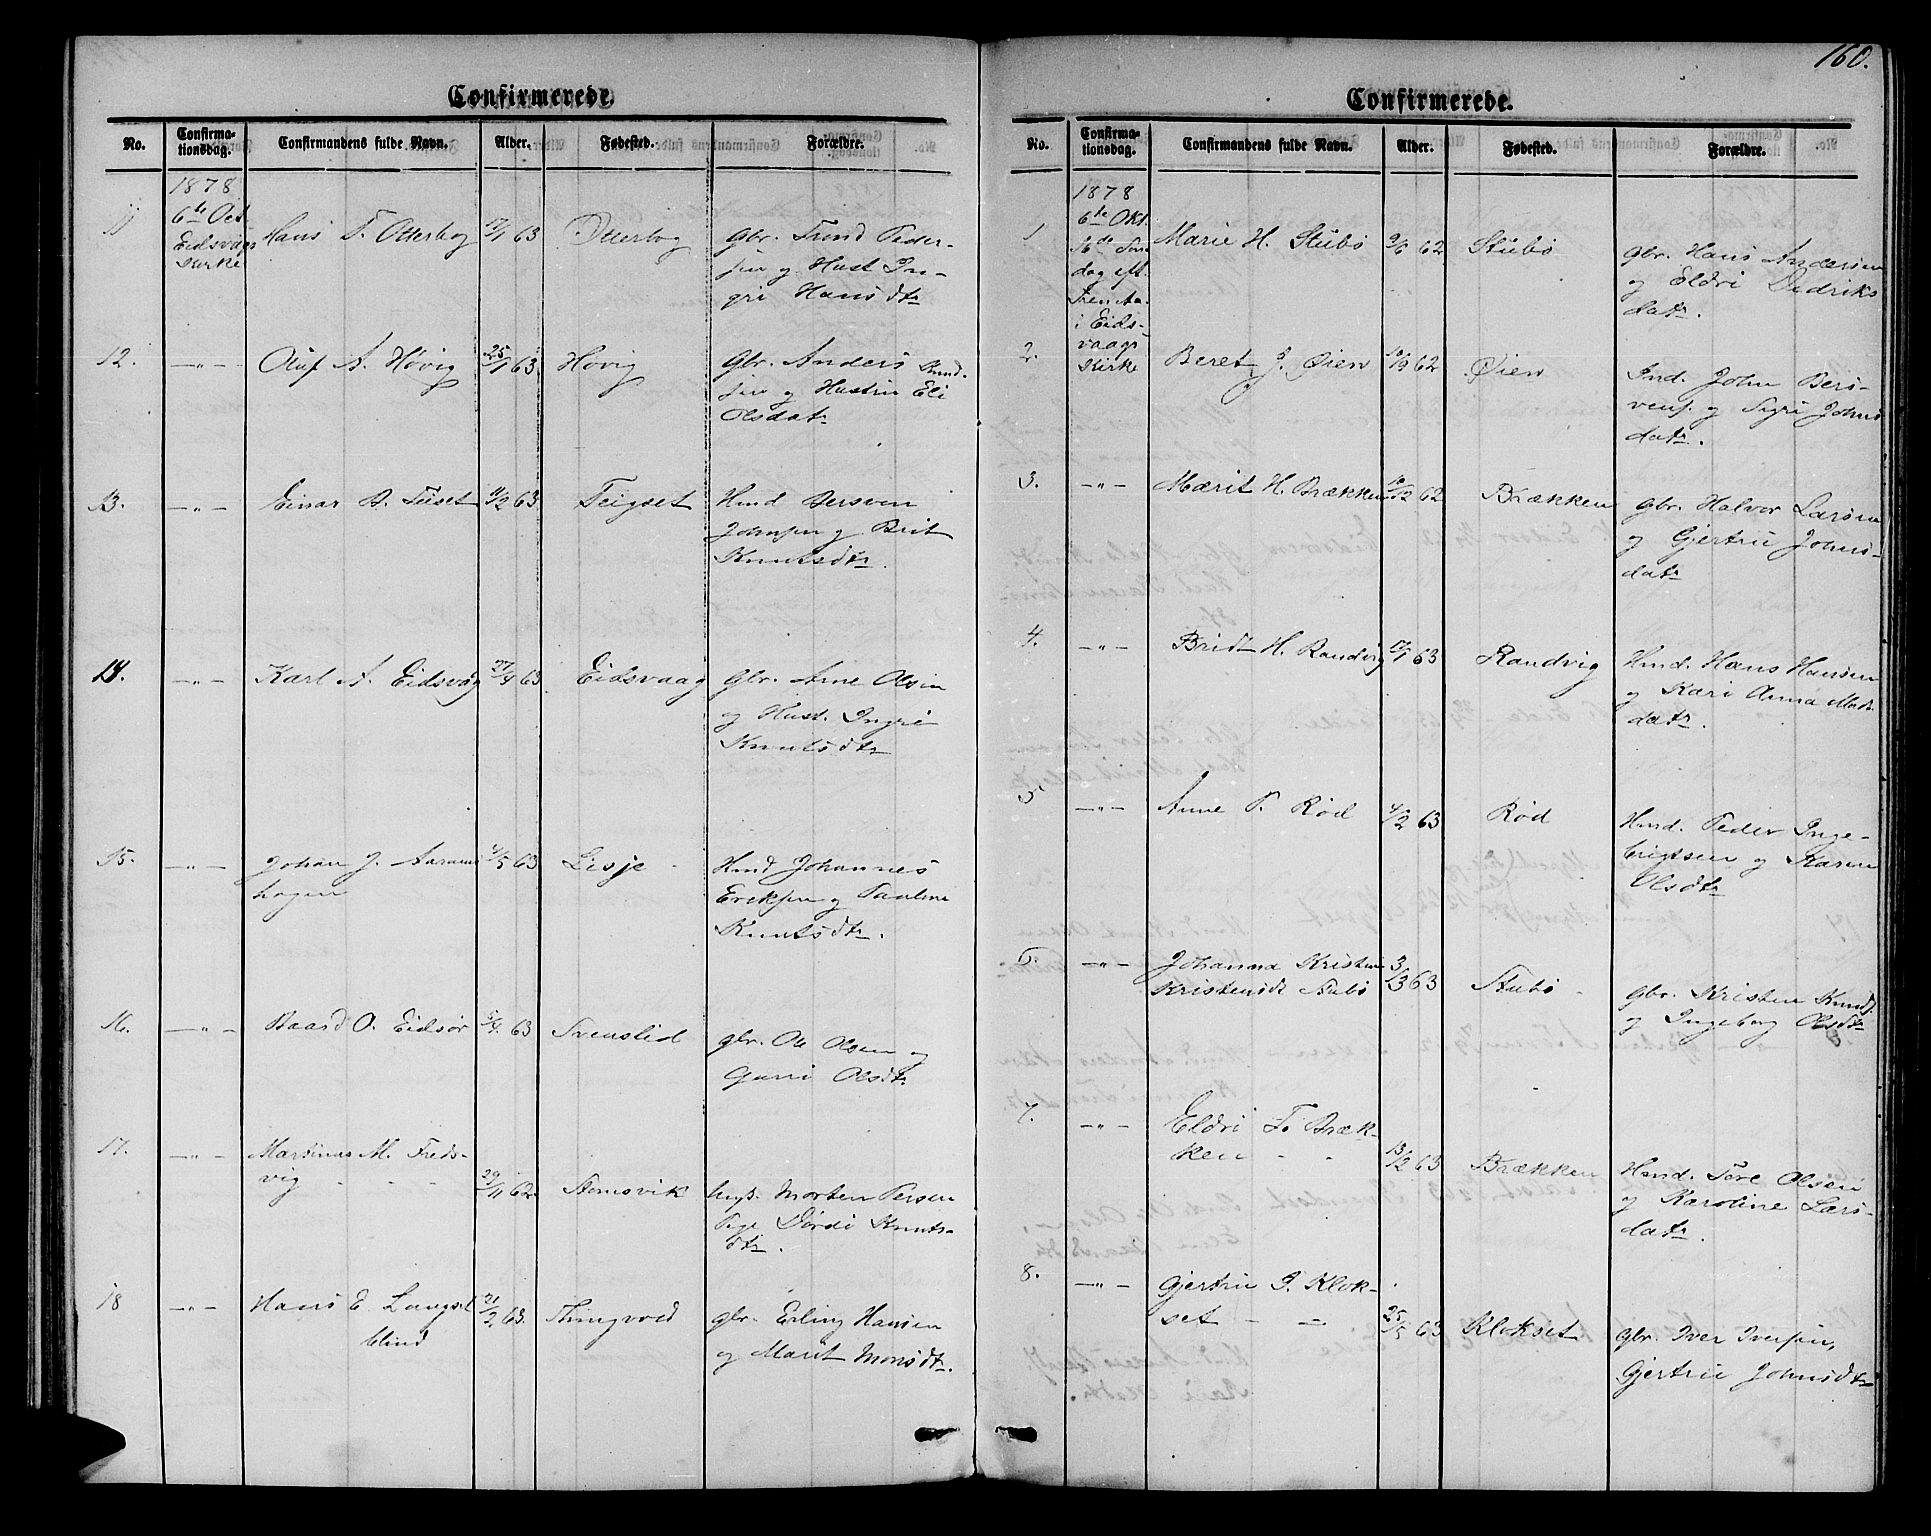 160.
Confirmerede.
No. Confirma-tionsdag. Confirmandens fulde Navn. Alder. Fødested. Forældre.
1878
6te Oct
Eidsvågs
Kirke
11 Hans T. Otterbog 63 Otterbog Gbr. Trund Peder-
sen og Hust In-
gri Hansdtr
12. —„— Oluf A. Høvig 25/1 63. Høvig Gbr. Anders Knud-
sen og Hustru Eli
Olsdatr
13. —„— Einar B. Teiset 11/2 63 Teigset Hmd Bersven
Johnsen og Brit
Knutsdtr.
14. —„— Karl A. Eidsvåg 27/4 63 Eidsvaag Gbr. Arne Olsen
og Hust. Ingri
Knutsdtr
15. —„— Johan J. 63 Lisje Hmd Johannes
hagen Eriksen og Pauline
Knutsdtr.
16. —„— Baard O. Eidsør 63 Svenslid gbr. Ole Olsen og
Guri Olsdtr
17. —„— Martinus M. Freds-
vig - - - 29/11 62. Stomsvik Morten Persen
Pige Dordi Knuts-
dtr.
18 —„— Hans E. Langset 21/2 63. Thingvold gbr. Erling Hansen
blind og Marit Monsdtr.
Confirmerede.
No. Confirma-tionsdag. Confirmandens fulde Navn. Alder. Fødested. Forældre.
1878
6te Okt.
16de Søn
dag eft.
Tren
i Eids-
vaags
Kirke
1 Marie H. Stubø 9/6 62 Stubø gbr. Hans Andersen
og Eldri Didriks
datr.
2. Beret J. Øien 10/9 62 Øien Ind. John Bers-
vens. og Sigri Johns
datr.
3. —„— Marit H. Brækken 16/12 62 Brækken gbr. Halvor Larsen
og Gjertru Johns-
datr
4. —„— Bridt H. Randvig 63 Randvig Hmd. Hans Hansen
og Kari Anna Mads
datr.
5. —„— Anne P. Rød 4/2 63 Rød Hmd. Peder Inge-
brigtsen og Karen
Olsdtr
6. —„— Johanna Kristine
Kristensdt Stubø 3/3 63 Stubø - gbr. Kristen Knuds.
og Ingeborg Olsdtr
7. —„— Eldri T. Bræk-
ken - - 13/2 63 Brækken Hmd. Tore Olsen
og Karoline Lars-
datr.
8. —„— Gjertru I. Klok-
set - - 25/5 63 Klokset gbr. Iver Iversen,
Gjertru Johnsdtr